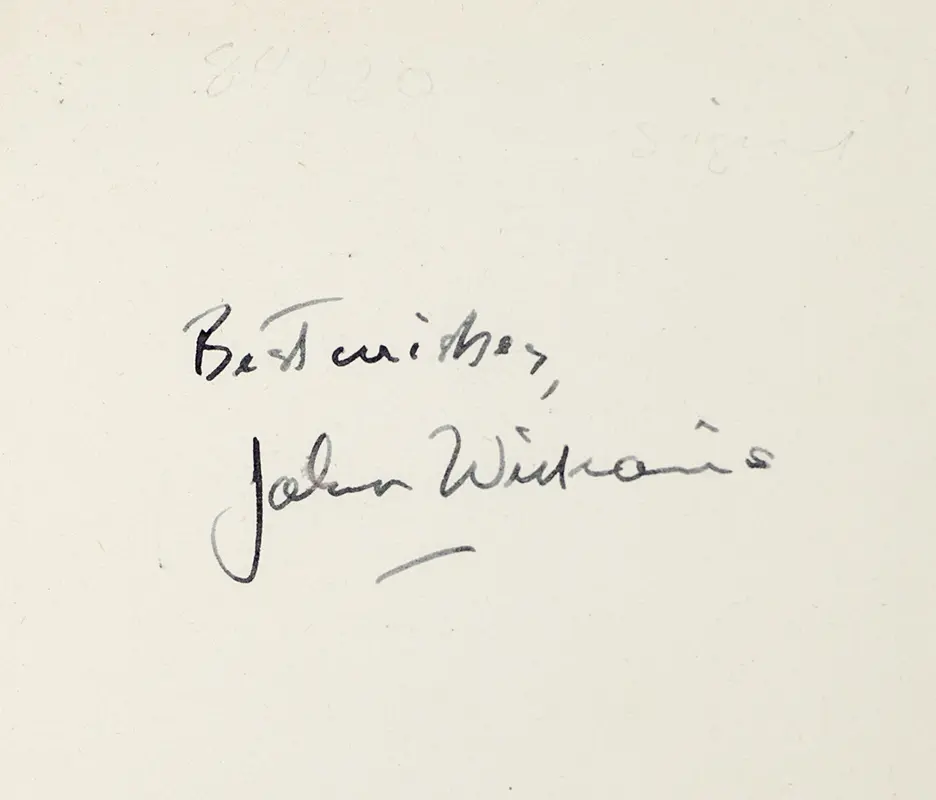 84220
Signed
Best wishes,
John Williams